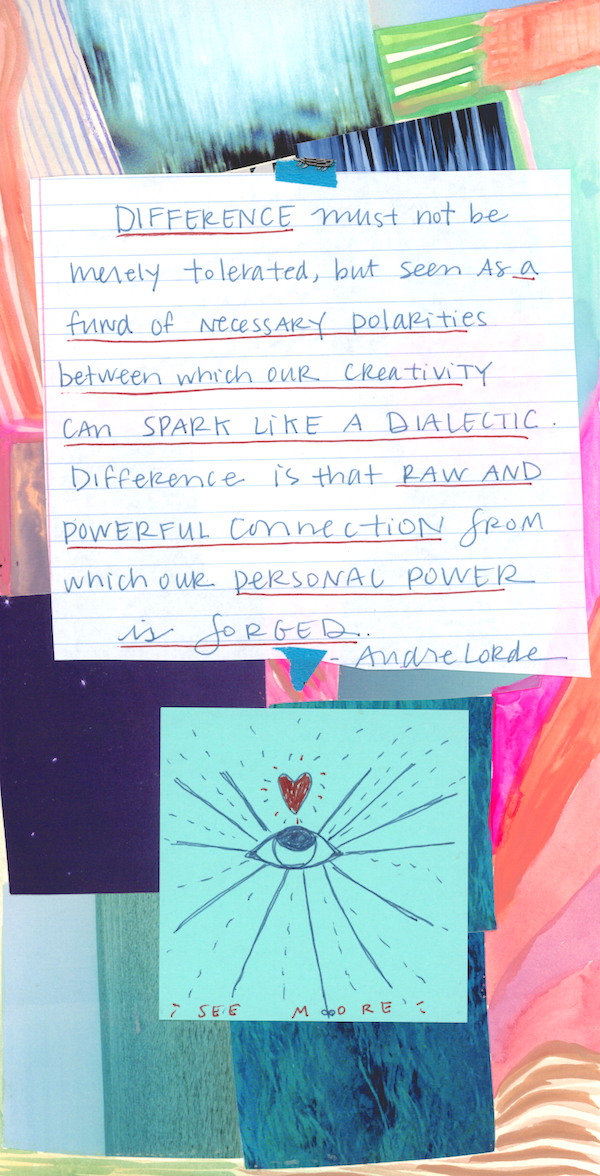 DIFFERENCE must not be
merely tolerated, but seen As a
fund of NECESSARY polarities
between which our creativity
CAN SPARK LIKE A DIALECTIC.
Difference is that RAW AND
POWERFUL CONNECTION from
which our PERSONAL POWER
is FORGED.
- Audre Lorde
SEE MOORE